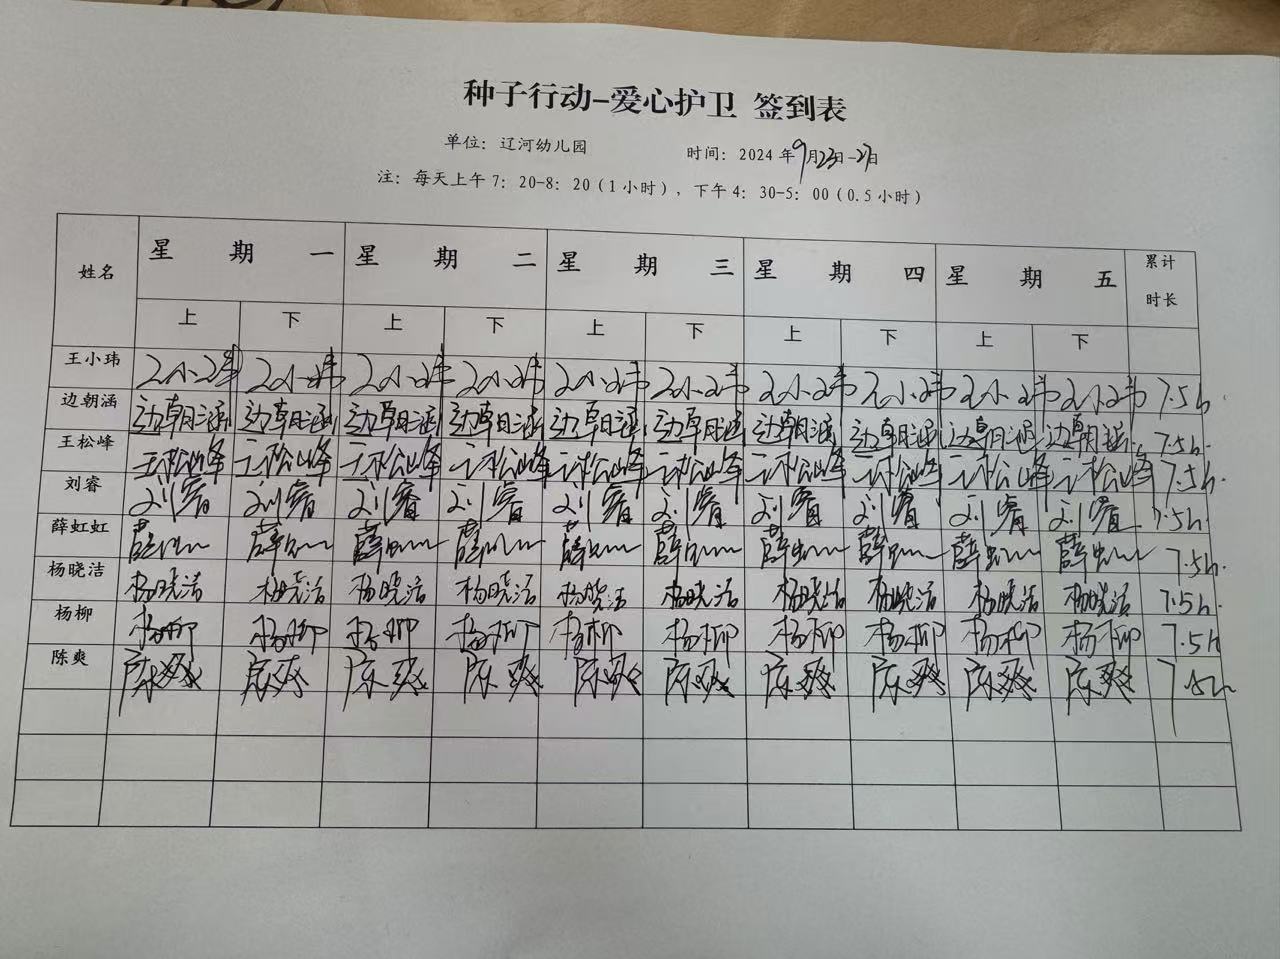 种子行动-爱心护卫 签到表
单位：辽河幼儿园 时间：2024年9月23日-27日
注：每天上午7：20-8：20（1小时），下午4：30-5：00（0.5小时）
姓名 星期一 星期二 星期三 星期四 星期五 累计时长
上 下 上 下 上 下 上 下 上 下
王小玮 王小玮 王小玮 王小玮 王小玮 王小玮 王小玮 王小玮 王小玮 王小玮 王小玮 7.5h.
边朝涵 边朝涵 边朝涵 边朝涵 边朝涵 边朝涵 边朝涵 边朝涵 边朝涵 边朝涵 边朝涵 7.5h.
王松峰 王松峰 王松峰 王松峰 王松峰 王松峰 王松峰 王松峰 王松峰 王松峰 王松峰 7.5h.
刘睿 刘睿 刘睿 刘睿 刘睿 刘睿 刘睿 刘睿 刘睿 刘睿 刘睿 7.5h.
薛虹虹 薛虹虹 薛虹虹 薛虹虹 薛虹虹 薛虹虹 薛虹虹 薛虹虹 薛虹虹 薛虹虹 薛虹虹 7.5h.
杨晓洁 杨晓洁 杨晓洁 杨晓洁 杨晓洁 杨晓洁 杨晓洁 杨晓洁 杨晓洁 杨晓洁 杨晓洁 7.5h.
杨柳 杨柳 杨柳 杨柳 杨柳 杨柳 杨柳 杨柳 杨柳 杨柳 杨柳 7.5h
陈爽 陈爽 陈爽 陈爽 陈爽 陈爽 陈爽 陈爽 陈爽 陈爽 陈爽 7.5h